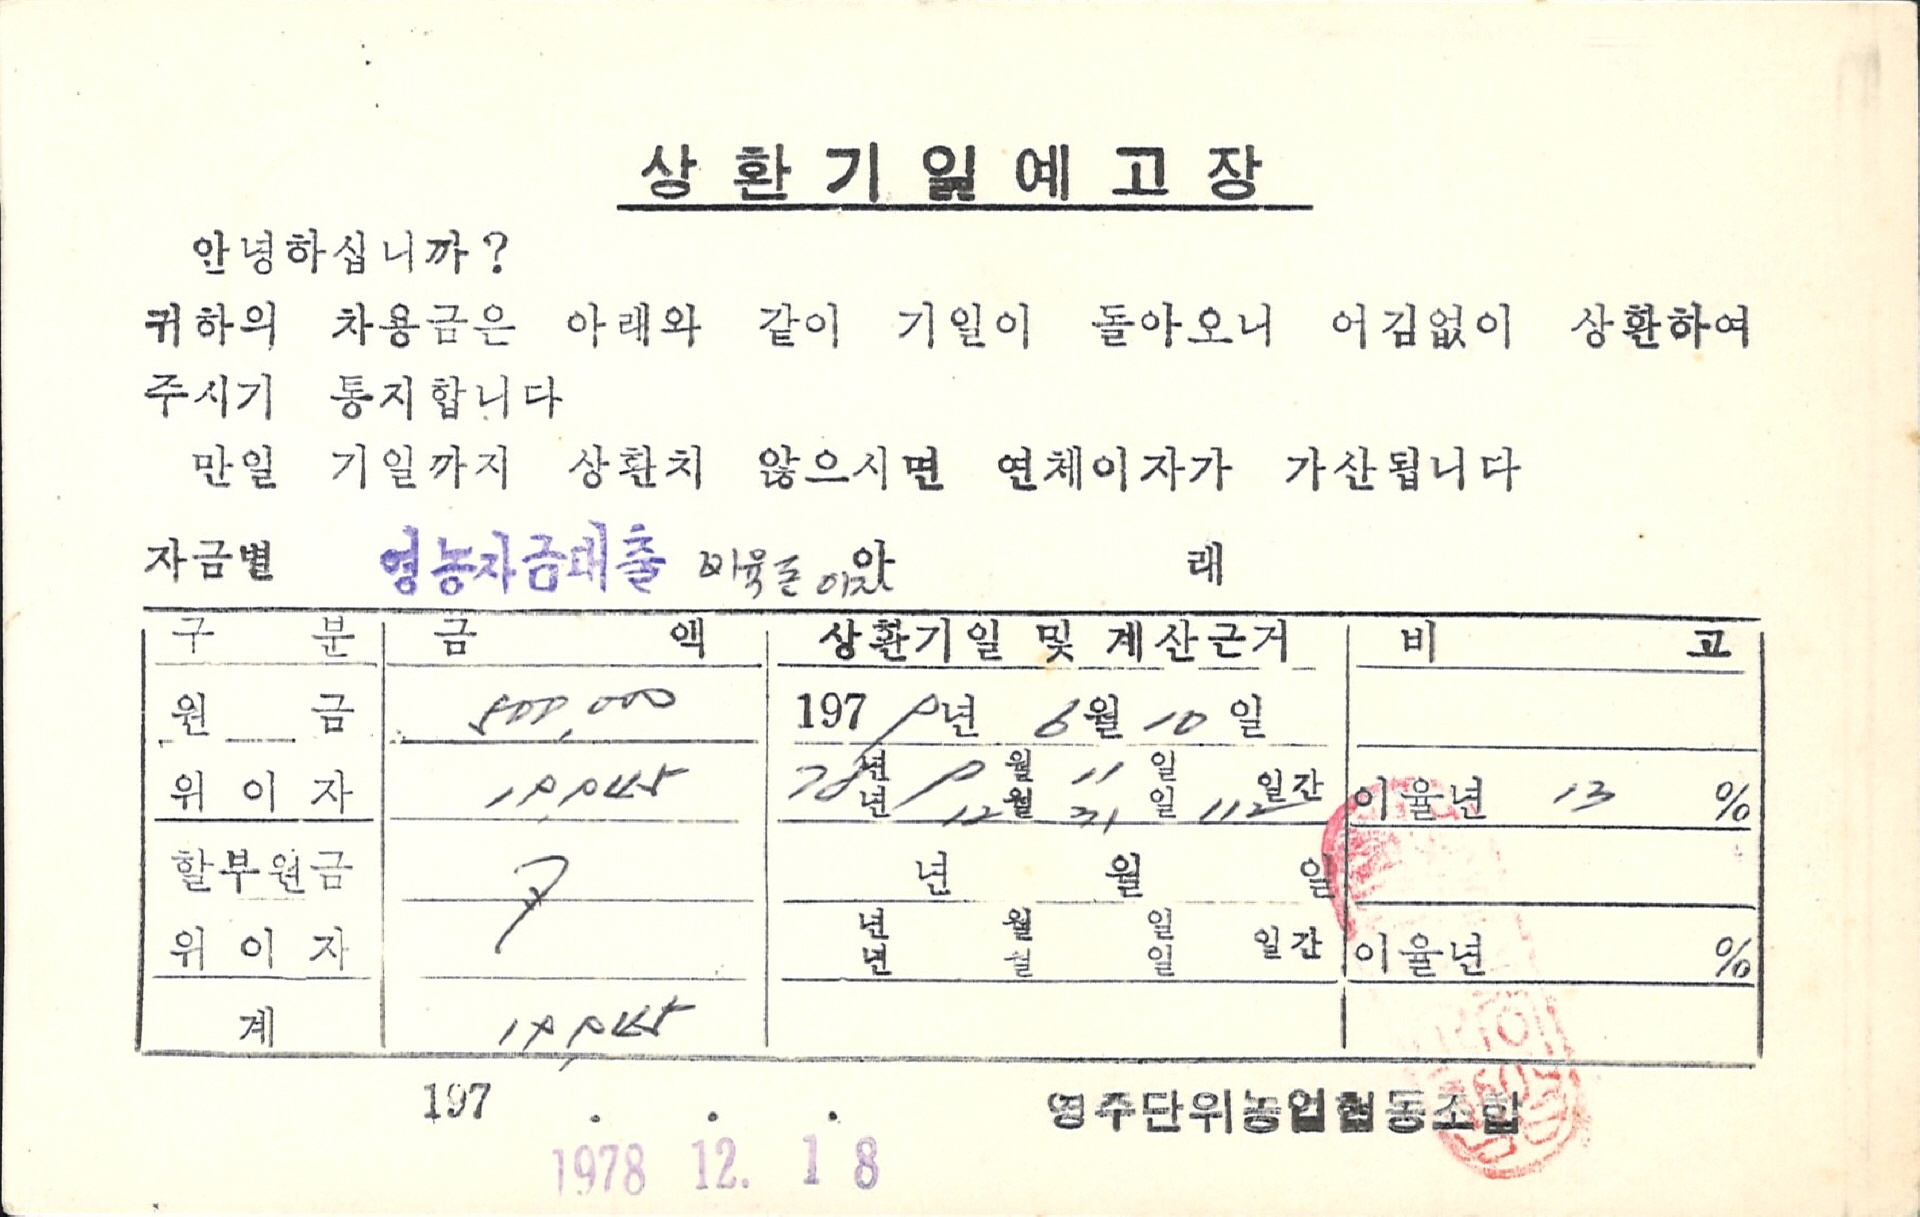 상환기일예고장
안녕하십니까?
귀하의 차용금은 아래와 같이 기일이 돌아오니 어김없이 상환하여
주시기 통지합니다
만일 기일까지 상환치 않으시면 연체이자가 가산됩니다
자금별 영농자금대출 비육돈 이자 아 래
구 분 금 액 상환기일 및 계산근거 비 고
원 금 500,000 1979년 6월 10일
위 이 자 19,945 78년 9월 11일
년 12월 31일 112일간 이율년 13 %
할부원금 년 월 일
위 이 자 년 월 일
년 월 일 일간 이율년 %
계 19,945
197 . . . 영주단위농업협동조합
1978 12. 18